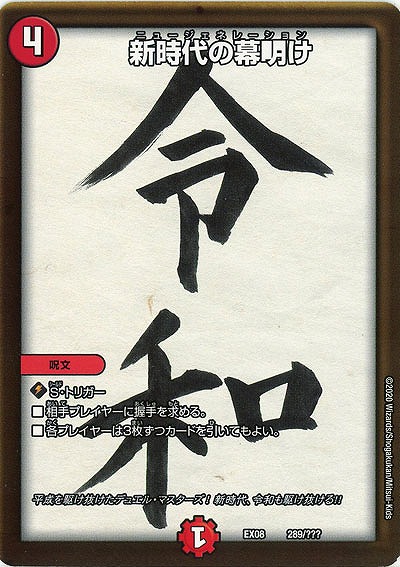 4
ニュージェネレーション
新時代の幕明け
令
和
呪文
S・トリガー
■相手プレイヤーに握手を求める。
■各プレイヤーは3枚ずつカードを引いてもよい。
平成を駆け抜けたデュエル・マスターズ！新時代、令和も駆け抜ける!!
©2020 Wizards/Shogakukan/Mitsui-Kids
1
EX08 289/???